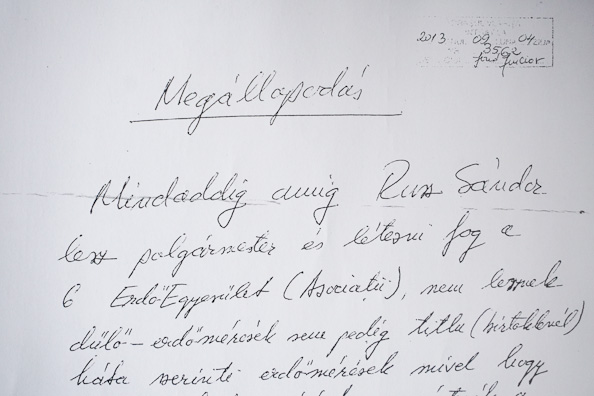 2013 09 04
3562
Megállapodás
Mindaddig amig Russ Sándor
lesz polgármester és létezni fog a
6 ErdőEgyesület (Asociații), nem lesznek
dűlő - erdőmérések sem pedig titlu (birtoklevél)
háta szerinti erdőmérések mivel hogy